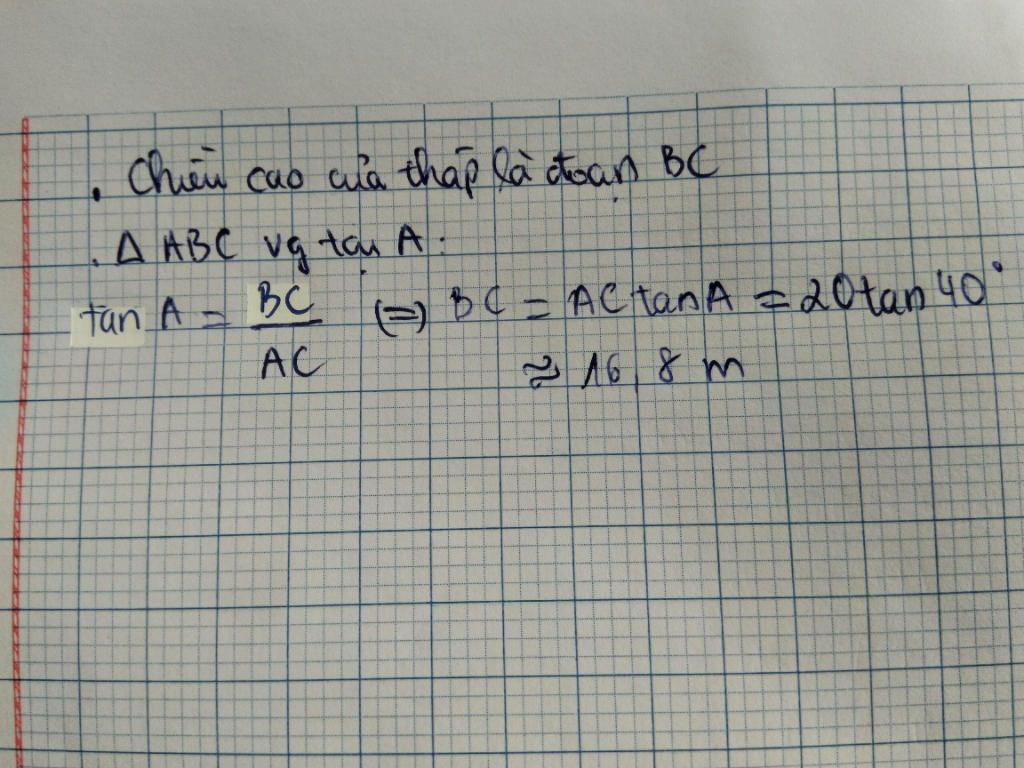 . Chiều cao của tháp là đoạn BC
. Δ ABC vg tại A :
tan A = BC/AC (=) BC = AC tan A = 20 tan 40°
≈ 16,8 m